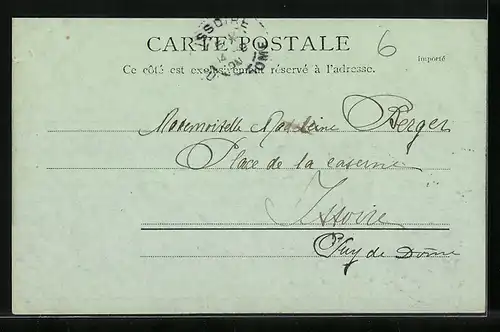 ISSOIRE
DOME
CARTE POSTALE
6
Importé
Ce côté est exclusivement réservé à l'adresse.
Mademoiselle Madeleine Berger
Place de la caserne
Issoire
Puy de Dôme